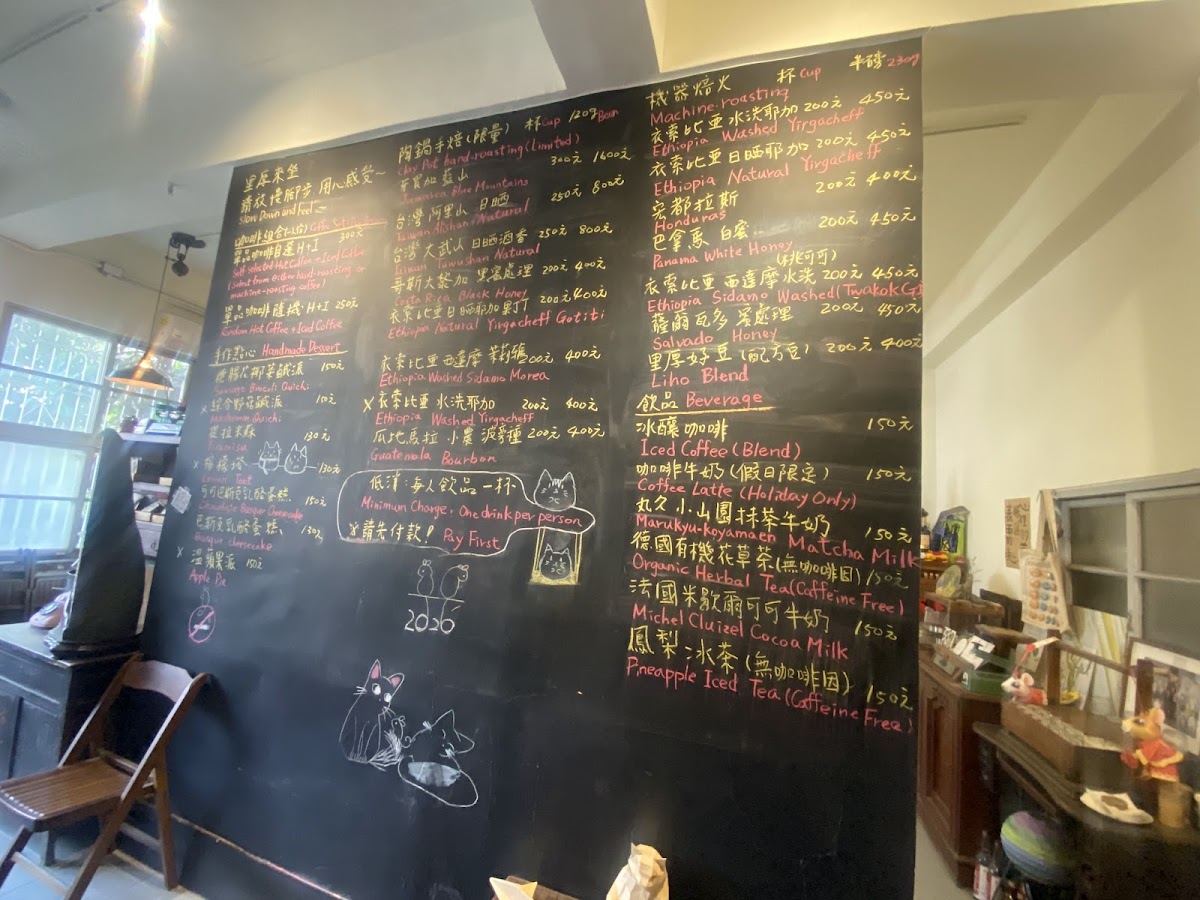 里厚來坐
請放慢腳步 用心感受~
Slow Down and Feel~
咖啡組合(1位) Coffee Set
單品咖啡自選 H+I 300元
Self-selected Hot Coffee + Iced Coffee
(Select from either hand-roasting or
machine-roasting coffee)
單品咖啡 隨機 H+I 250元
Random Hot Coffee + Iced Coffee
手作點心 Handmade Dessert
花椰菜鹹派 150元
Broccoli Quichi
x 綜合野菇鹹派 150元
Quichi
提拉米蘇 130元
Tiramisu
x 檸檬塔 130元
Lemon Tart
巧可巴斯克乳酪蛋糕 150元
Chocolate Basque Cheesecake
巴斯克乳酪蛋糕 130元
Basque cheesecake
x 溫蘋果派 150元
Apple Pie
陶鍋手焙(限量) 杯 Cup 120g Bean
Clay Pot hand-roasting (Limited)
牙買加 藍山 300元 1600元
Jamaica Blue Mountains
台灣 阿里山 日晒 250元 800元
Taiwan Alishan Natural
台灣 大武山 日晒酒香 250元 800元
Taiwan Dawushan Natural
哥斯大黎加 黑蜜處理 200元 400元
Costa Rica Black Honey
衣索比亞日晒耶加果丁丁 200元 400元
Ethiopia Natural Yirgacheff Gotiti
衣索比亞 西達摩 茉莉鴉 200元 400元
Ethiopia Washed Sidamo Morea
x 衣索比亞 水洗耶加 200元 400元
Ethiopia Washed Yirgacheff
瓜地馬拉 小農 波旁種 200元 400元
Guatemala Bourbon
低消:每人飲品一杯
Minimum Charge: One drink per person
請先付款! Pay First
2026
機器焙火 杯 Cup 半磅 230g
Machine-roasting
衣索比亞 水洗耶加 200元 450元
Ethiopia Washed Yirgacheff
衣索比亞 日晒耶加 200元 450元
Ethiopia Natural Yirgacheff
宏都拉斯 200元 400元
Honduras
巴拿馬 白蜜 200元 450元
Panama White Honey
衣索比亞 西達摩水洗 (洮兆可可) 200元 450元
Ethiopia Sidamo Washed (Twakok G1
薩爾瓦多 蜜處理 200元 450元
Salvado Honey
里厚好豆(配方豆) 200元 400元
Liho Blend
飲品 Beverage
冰釀咖啡 150元
Iced Coffee (Blend)
咖啡牛奶(假日限定) 150元
Coffee Latte (Holiday Only)
丸久小山園抹茶牛奶 150元
Marukyu-koyamaen Matcha Milk
德國有機花草茶(無咖啡因) 150元
Organic Herbal Tea (Caffeine Free)
法國米歇爾可可牛奶 150元
Michel Cluizel Cocoa Milk
鳳梨冰茶(無咖啡因) 150元
Pineapple Iced Tea (Caffeine Free)